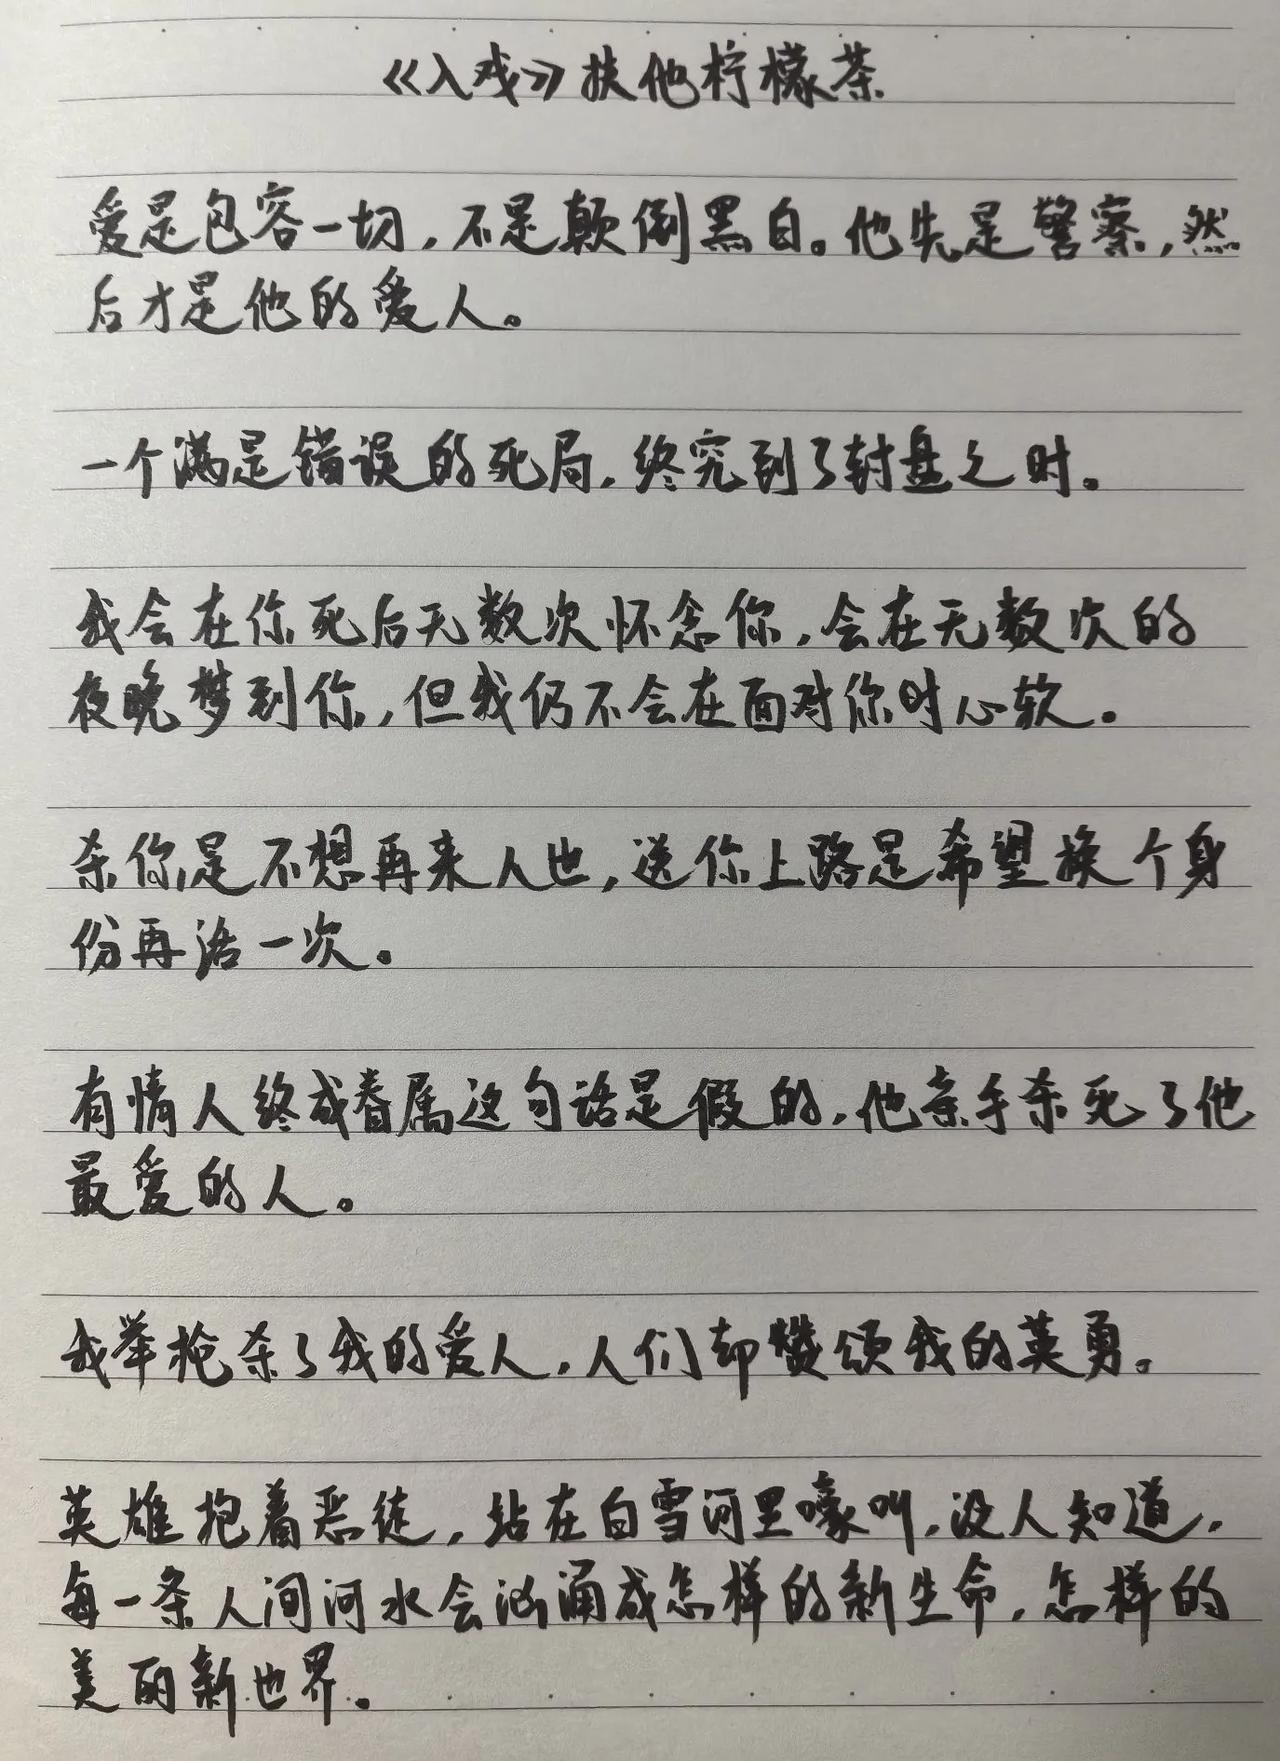 《入戏》扶他柠檬茶
爱是包容一切，不是颠倒黑白。他先是警察，然
后才是他的爱人。
一个满是错误的死局，终究到了封盘之时。
我会在你死后无数次怀念你，会在无数次的
夜晚梦到你，但我仍不会在面对你时心软。
杀你是不想再来人世，送你上路是希望换个身
份再活一次。
有情人终成眷属这句话是假的，他亲手杀死了他
最爱的人。
我举枪杀了我的爱人，人们却赞颂我的英勇。
英雄抱着恶徒，站在白雪河里嚎叫，没人知道，
每一条人间河水会汹涌成怎样的新生命，怎样的
美丽新世界。